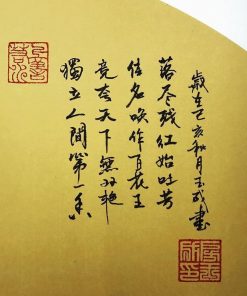 歲在己亥秋月玉成畫
落尽残红始吐芳
佳名唤作百花王
竞夸天下無双艳
獨立人間第一香